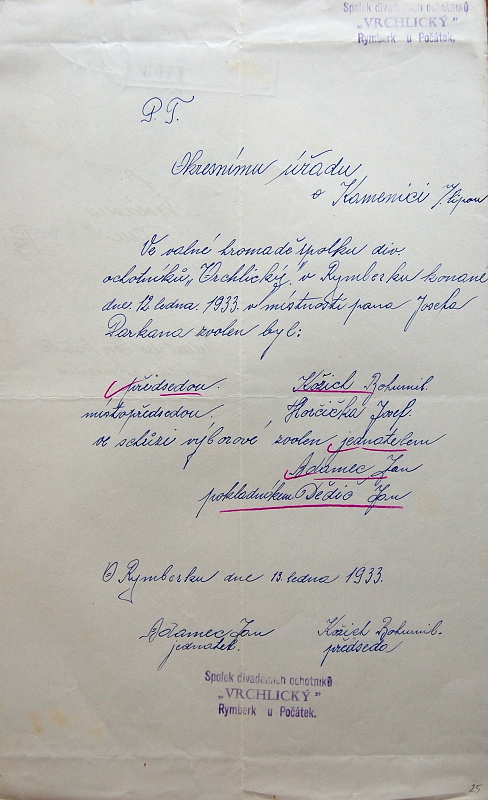 Spolek divadelních ochotníků
„VRCHLICKÝ”
Rymberk u Počátek.
P. T.
Okresnímu úřadu
v Kamenici n/Lipou
Ve valné hromadě spolku div.
ochotníků „Vrchlický” v Rymberku konané
dne 12. ledna. 1933. v místnosti pana Josefa
Darkana zvolen byl:
předsedou. Kožich Bohumil.
místopředsedou. Horčička Josef.
ve schůzi výborové zvolen jednatelem
Adamec Jan
pokladníkem Dědič Jan
V Rymberku dne 13. ledna 1933.
Adamec Jan Kožich Bohumil.
jednatel. předseda
Spolek divadelních ochotníků
„VRCHLICKÝ”
Rymberk u Počátek.
25